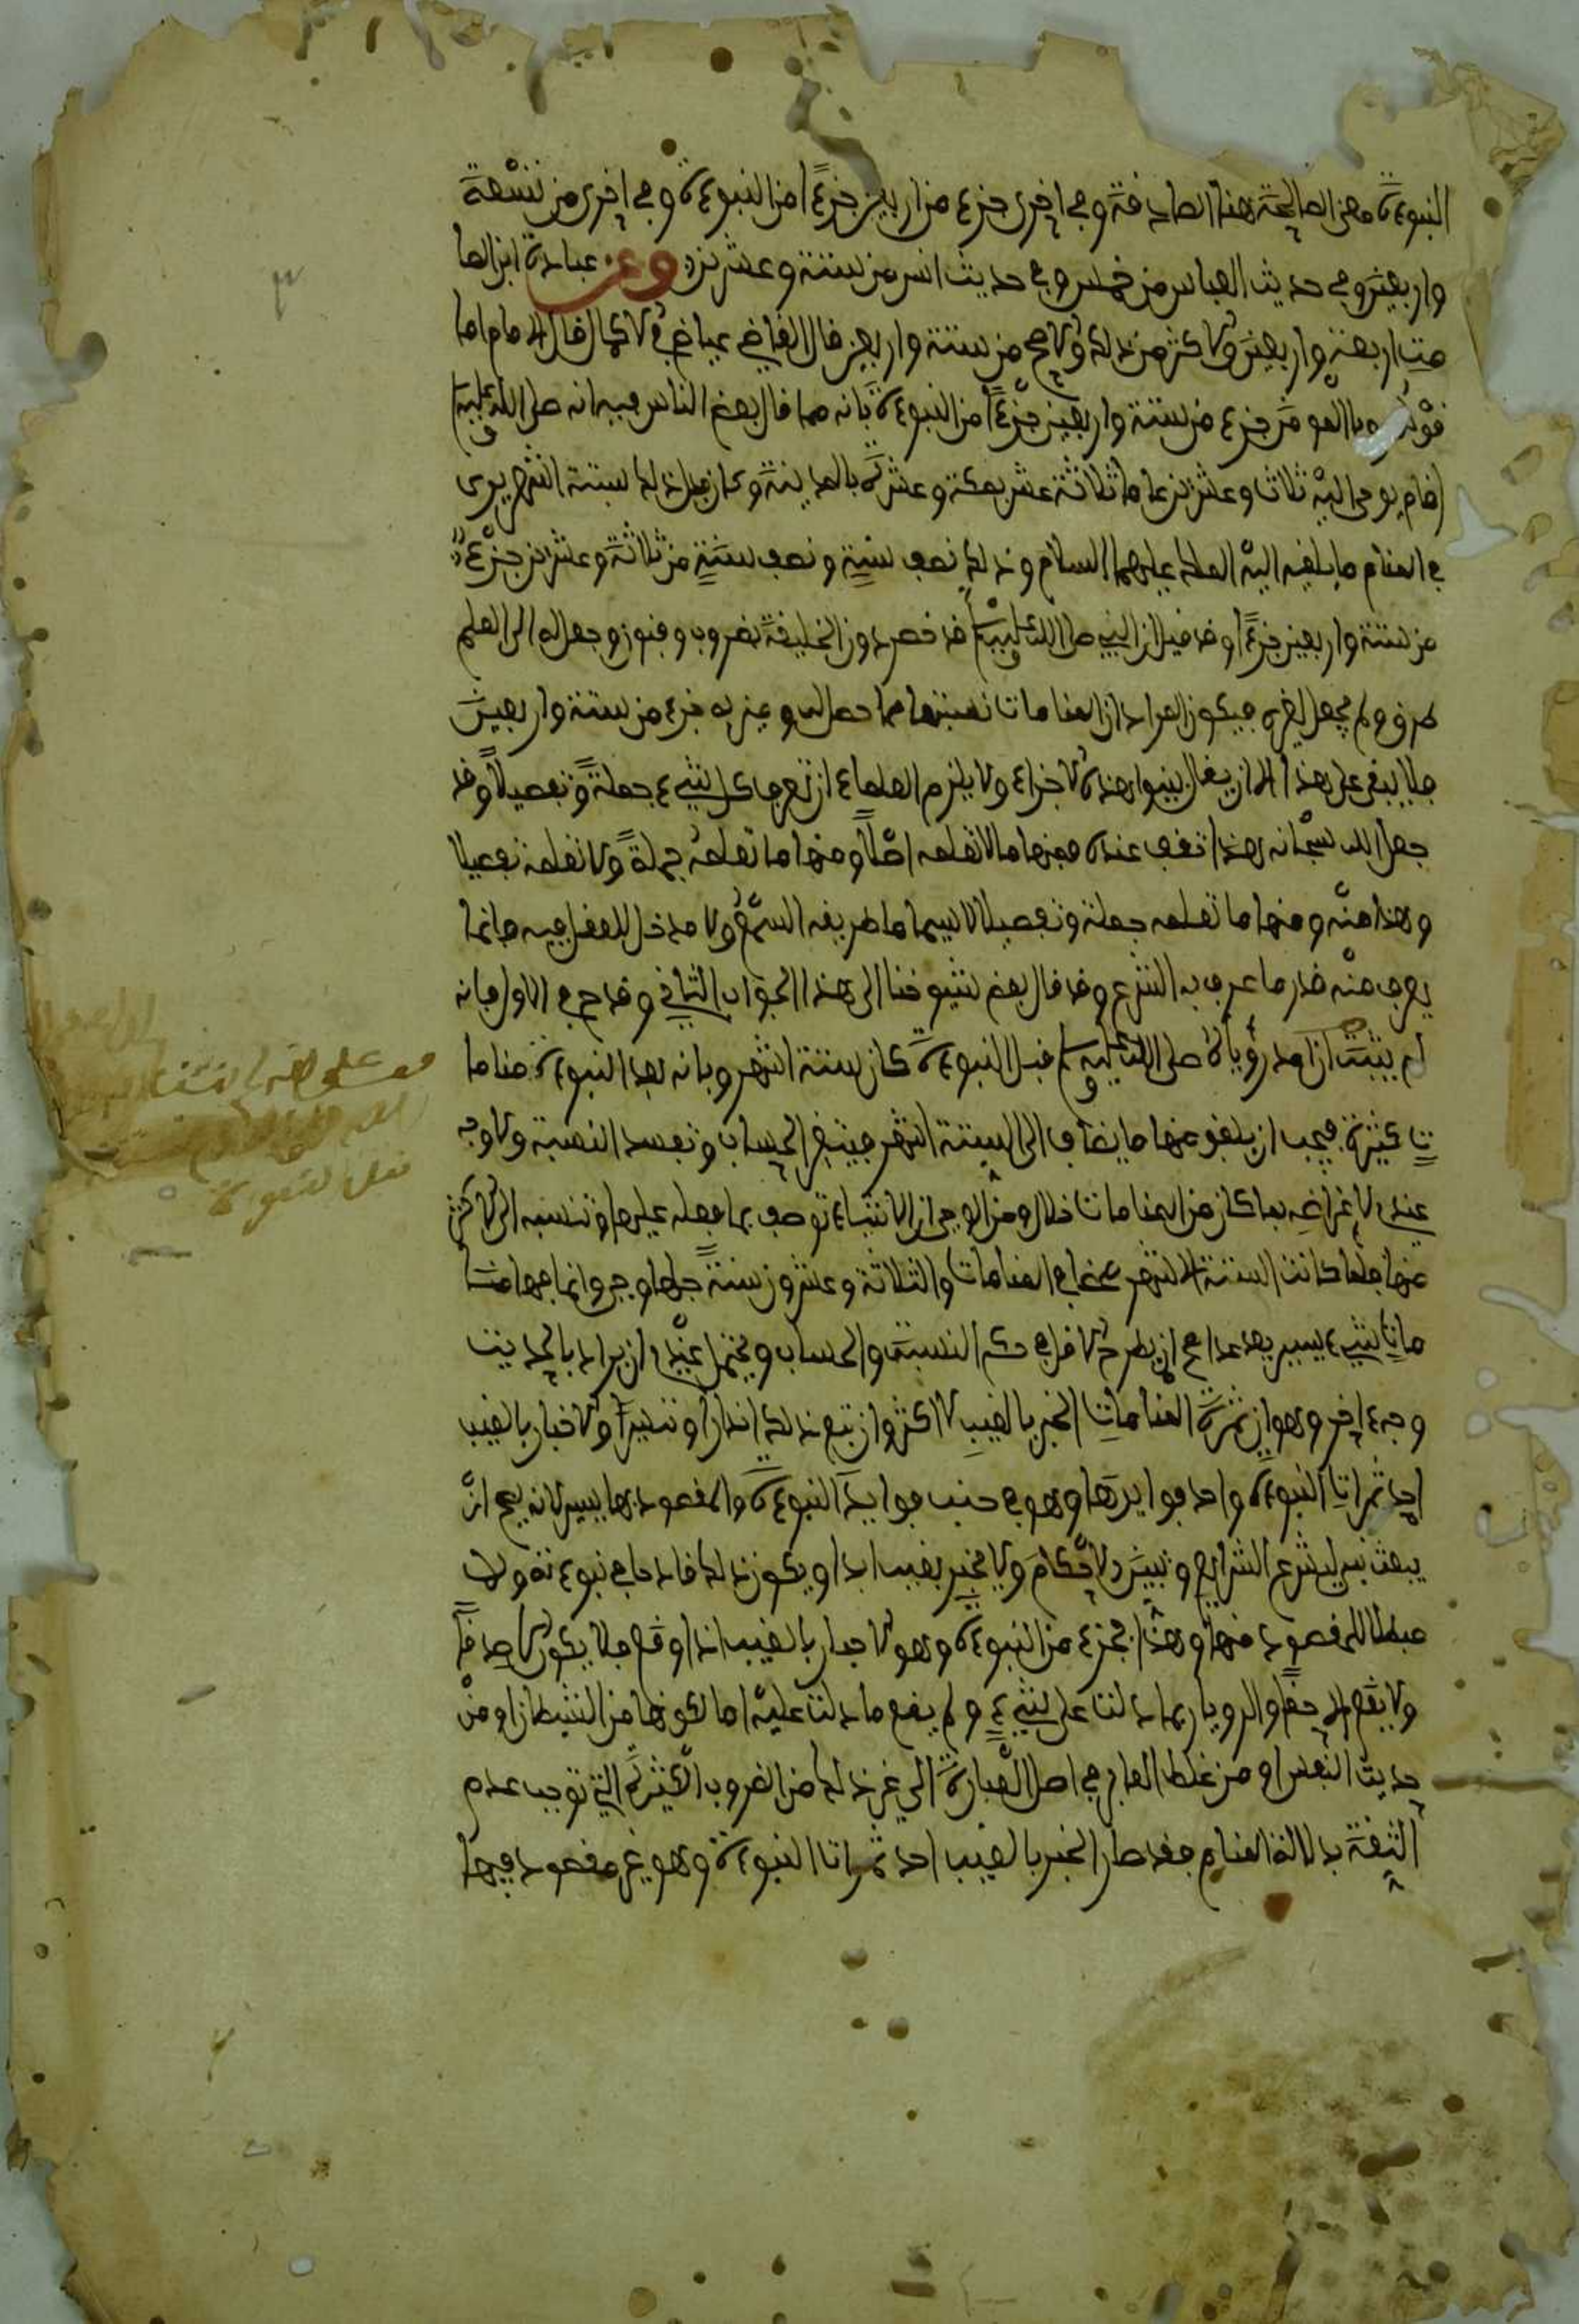 النبوءة ومعنى الصالحة هنا الصادقة وفي اخرى جزء من اربعين جزءًا من النبوءة وفي اخرى من تسعة
واربعين وفي حديث العباس من خمسين وفي حديث انس من ستة وعشرين وعن عبادة ابن الصا
مت اربعة واربعين والاكثر من ذلك والاصح من ستة واربعين قال القاضي عياض في الاكمال قال الامام اما
قوله جزء من ستة واربعين جزءًا من النبوءة بانه مما قال بعض الناس فيه انه صلى الله عليه وسلم
اقام يوحى اليه ثلاث وعشرين عاما ثلاثة عشر بمكة وعشرة بالمدينة وكان قبل ذلك بستة اشهر يرى
في المنام ما يلقيه اليه الملك عليهما السلام وذلك نصف سنة ونصف سنة من ثلاثة وعشرين جزء
من ستة واربعين جزءًا وقد قيل ان النبي صلى الله عليه وسلم قد خص دون الخليفة بضروب وفنون وجعل له الى العلم
طرق ولم يجعل لغيره فيكون المراد ان المنامات نسبتها مما حصل له وميز به جزء من ستة واربعين
فلا يبقى على هذا الا ان يقال بينوا هذه الاجزاء ولا يلزم العلماء ان تعرف كل شيء جملة وتفصيلا وقد
جعل الله سبحانه لهذا تقف عنده فمنها ما لا تعلمه اصلا ومنها ما تعلمه جملة ولا تعلمه تفصيلا
وهذا منه ومنها ما تعلمه جملة وتفصيلا لا سيما ما طريقه السمع ولا مدخل للعقل فيه فانما
يعرف منه قدر ما عرف به الشرع وقد قال بعض شيوخنا الى هذا الجواب الثاني وقدح في الاول بانه
لم يثبت ان امد رؤياه صلى الله عليه وسلم قبل النبوءة كان ستة اشهر وبانه بعد النبوءة مناما
ت كثيرة فيجب ان يلفق منها ما يضاف الى الستة اشهر فيتغير الحساب وتفسد النسبة ولا وجه
عندي لاعتراضه بما كان من المنامات خلال زمن الوحي لان الاشياء توصف بما فعله عليها وتنسبه الى الاكثر
منها فلما كانت الستة الاشهر في المنامات والثلاثة وعشرون سنة جلها وحي وانما فيها منا
مات شيء يسير بعد عدا صح ان يطرح الاقل في حكم النسبة والحساب ويحتمل عندي ان يراد بالحديث
وجه اخر وهو ان ثمرة المنامات الخبر بالغيب لا اكثر وان تبع ذلك انذارا وتبشيرا والاخبار بالغيب
احد ثمرات النبوءة واحد فوايدها وهو في جنب فوايد النبوءة والمقصود بها يسير لانه يصح ان
يبعث نبي ليشرع الشرايع ويبين الاحكام ولا يخبر بغيب ابدا ويكون ذلك قادحا في نبوءته ولا
مبطلا للمقصود منها وهذا الجزء من النبوءة وهو الاخبار بالغيب اذا وقع فلا يكون الا صدقا
ولا يقع الا حقا والرويا ربما دلت على شيء ولم يقع ما دلت عليه اما لكونها من الشيطان او من
حديث النفس او من غلط العابر في اصل العبارة الى غير ذلك من الضروب الكثيرة التي توجب عدم
الثقة بدلالة المنام فقد صار الخبر بالغيب احد ثمرات النبوءة وهو غير مقصود فيها